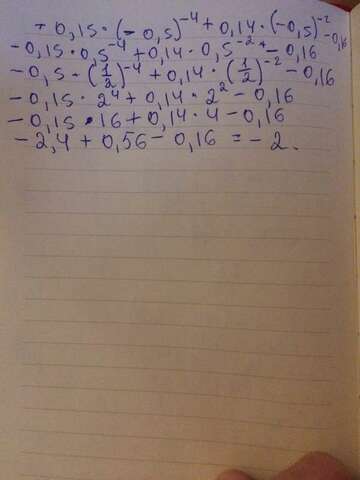 - 0,15 · (- 0,5)⁻⁴ + 0,14 · (-0,5)⁻² -0,16
- 0,15 · 0,5⁻⁴ + 0,14 · 0,5⁻² - 0,16
- 0,5 · (1/2)⁻⁴ + 0,14 · (1/2)⁻² - 0,16
- 0,15 · 2⁴ + 0,14 · 2² - 0,16
- 0,15 · 16 + 0,14 · 4 - 0,16
- 2,4 + 0,56 - 0,16 = - 2.